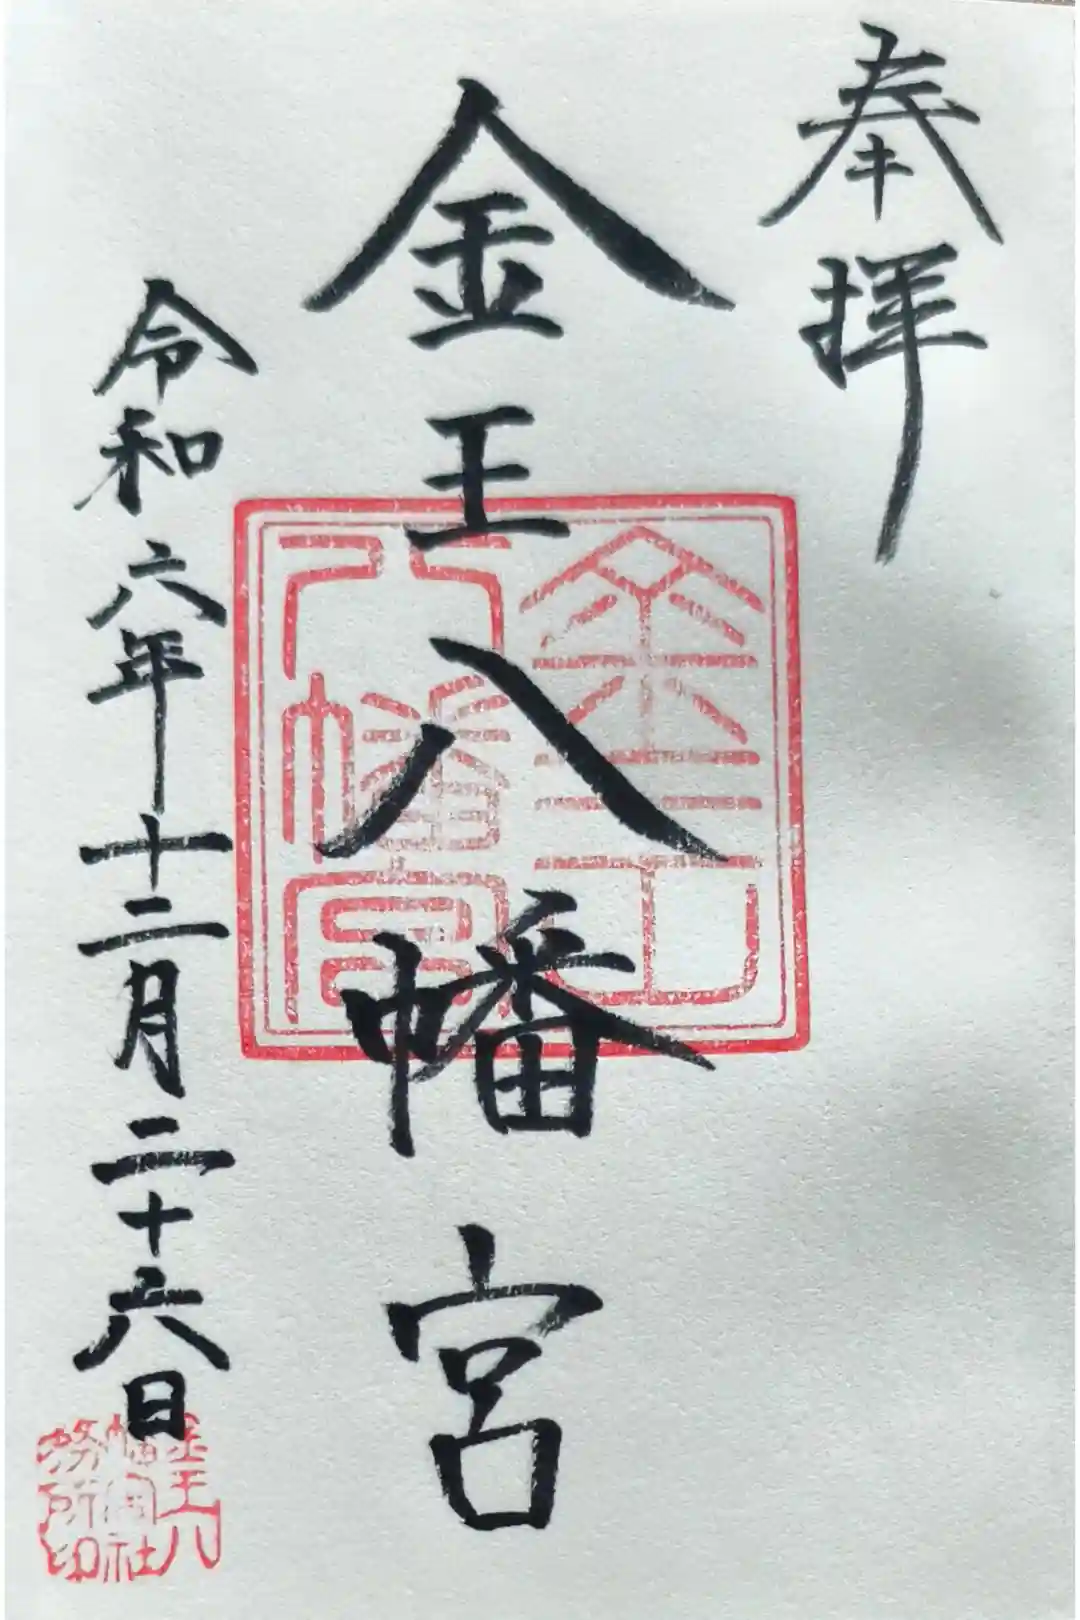 奉拝
金王八幡宮
令和六年十二月二十六日
金王八幡宮
金王八幡宮社務所印